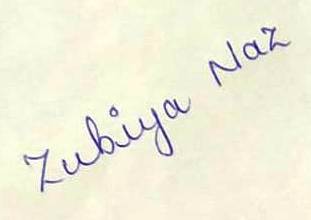 Zubiya Naz